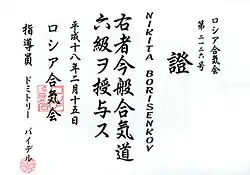 ロシア合気会
第二一六号
證
NIKITA BORISENKOV
右者今般合気道
六級ヲ授与ス
平成十八年二月十五日
ロシア合気会
指導員 ドミトリー バイデル